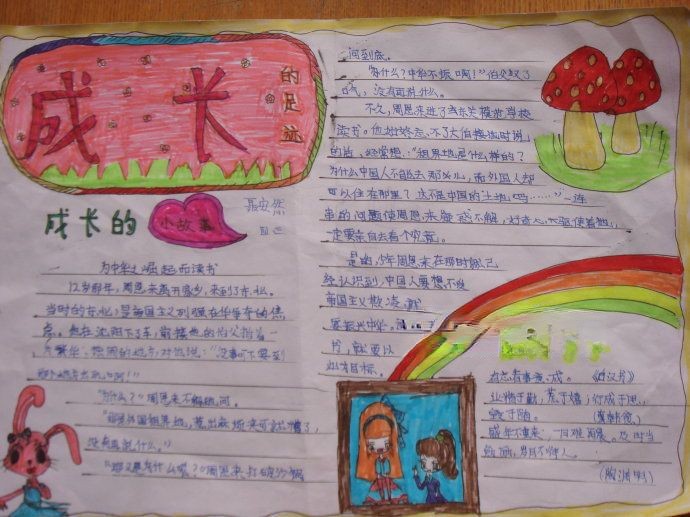 成长
的足迹
成长的
小故事
为中华之崛起而读书
12岁那年，周恩来离开家乡，来到了东北。
当时的东北，是帝国主义列强在华争夺的焦
点。他在沈阳下了车，前接他的伯父指着一
片繁华、热闹的地方，对他说："没事可不要到
那个地方去玩啊！"
"为什么？"周恩来不解地问。
"那是外国租界地，惹出麻烦来可就糟了，
没有再说什么。"
"那又是为什么呢？"周恩来打破沙锅
问到底。
"为什么？中华不振啊！"伯父叹了
口气，没有再说什么。
不久，周恩来进了东关模范学校
读书。他始终忘不了大伯接他时说
的话，经常想："租界地是什么样的？
为什么中国人不能去那儿，而外国人却
可以住在那里？这不是中国的土地吗……"一连
串的问题使周恩来疑惑不解，好奇心驱使着他，
一定要亲自去看个究竟。
是的，少年周恩来在那时就已
经认识到，中国人要想不受
帝国主义欺凌，就
要振兴中华。
书，就要以
此为目标。
有志者事竟成。《后汉书》
业精于勤，荒于嬉；行成于思，
毁于随。
盛年不重来，一日难再晨。及时当
勉励，岁月不待人。